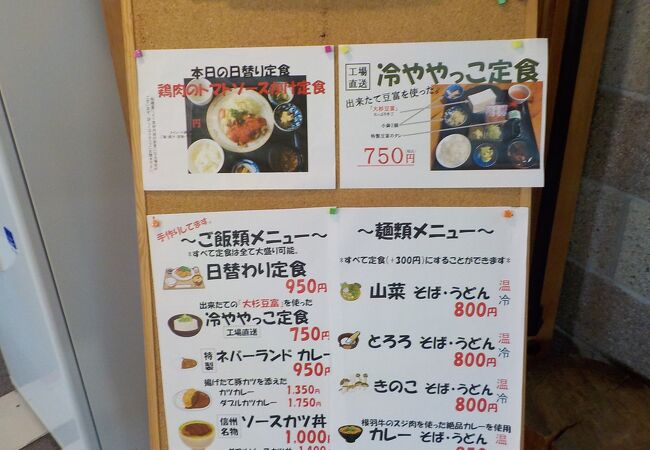 本日の日替り定食
鶏肉のトマトソースがけ定食
円
工場
直送
冷ややっこ定食
出来たて豆富を使った。
「大杉豆富」
小鍋2鍋
特製豆富のタレ
750円
手作りしてます。
～ご飯類メニュー～
*すべて定食は全て大盛り可能。
日替わり定食
950円
出来たての「大杉豆富」を使った
冷ややっこ定食
工場直送
750円
特製
ネバーランド カレー
950円
揚げたて豚カツを添えた
カツカレー 1,350円
ダブルカツカレー 1,750円
信州名物
ソースカツ丼
1,000円
～麺類メニュー～
*すべて定食(+300円)にすることができます*
山菜 そば・うどん 温冷
800円
とろろ そば・うどん 温冷
800円
きのこ そば・うどん 温冷
800円
根羽牛のスジ肉を使った絶品カレーを使用
カレー そば・うどん 温